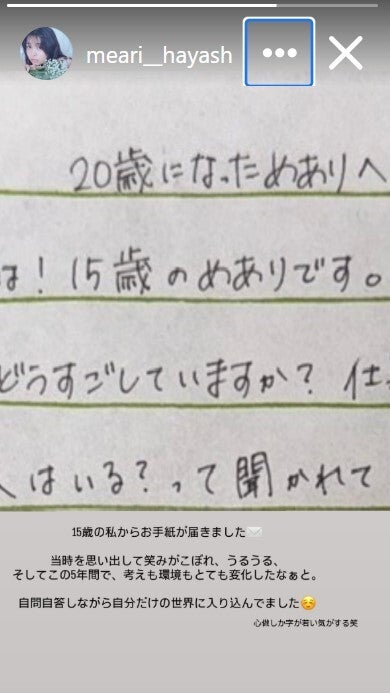 meari__hayash
20歳になっためありへ
は！15歳のめありです。
どうすごしていますか？仕
はいる？って聞かれて
15歳の私からお手紙が届きました✉️
当時を思い出して笑みがこぼれ、うるうる、
そしてこの5年間で、考えも環境もとても変化したなぁと。
自問自答しながら自分だけの世界に入り込んでました☺️
心做しか字が若い気がする笑